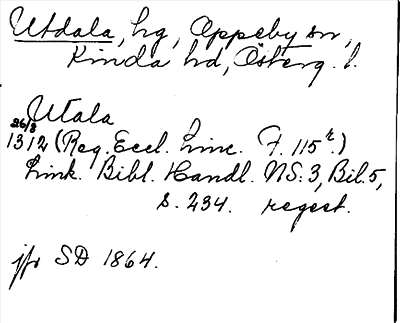 Utdala, hg, Oppeby sn,
Kinda hd, Österg. l.
Utala
26/8
1312 (Reg. Eccl. Linc. F. 115 r.)
Link. Bibl. Handl. NS: 3, Bil. 5,
s. 234. regest.
jfr SD 1864.